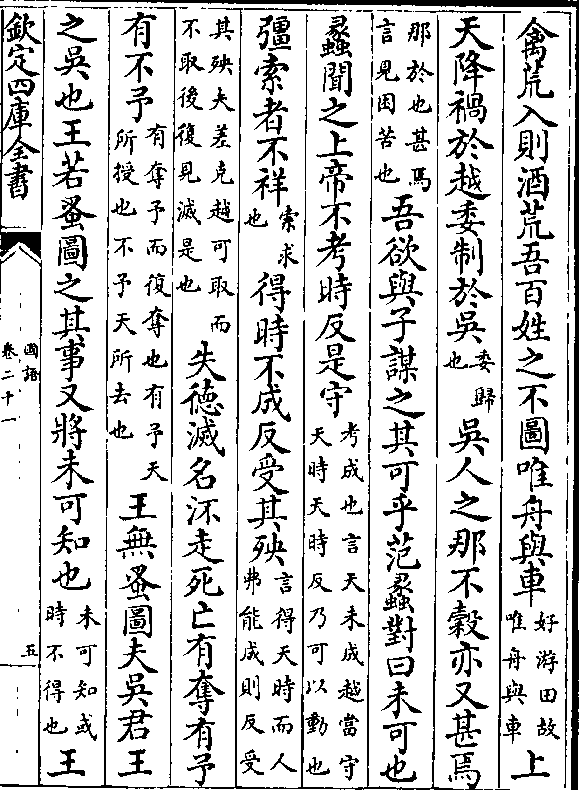 禽荒入則酒荒吾百姓之不圖唯舟與車好游田故唯舟與車上
天降禍於越委制於吳委歸也吳人之那不穀亦又甚焉
那於也甚焉言見困苦也吾欲與子謀之其可乎范蠡對曰未可也
蠡聞之上帝不考時反是守考成也言天未成越當守天時天時反乃可以動也
彊索者不祥索求也得時不成反受其殃言得天時而人弗能成則反受
其殃夫差克越可取而不取後復見滅是也失德滅名流走死亡有奪有予
有不予有奪予而復奪也有予天所授也不予天所去也王無蚤圖夫吳君王
之吳也王若蚤圖之其事又將未可知也未可知或時不得也王
欽定四庫全書
國語
卷二十一
五